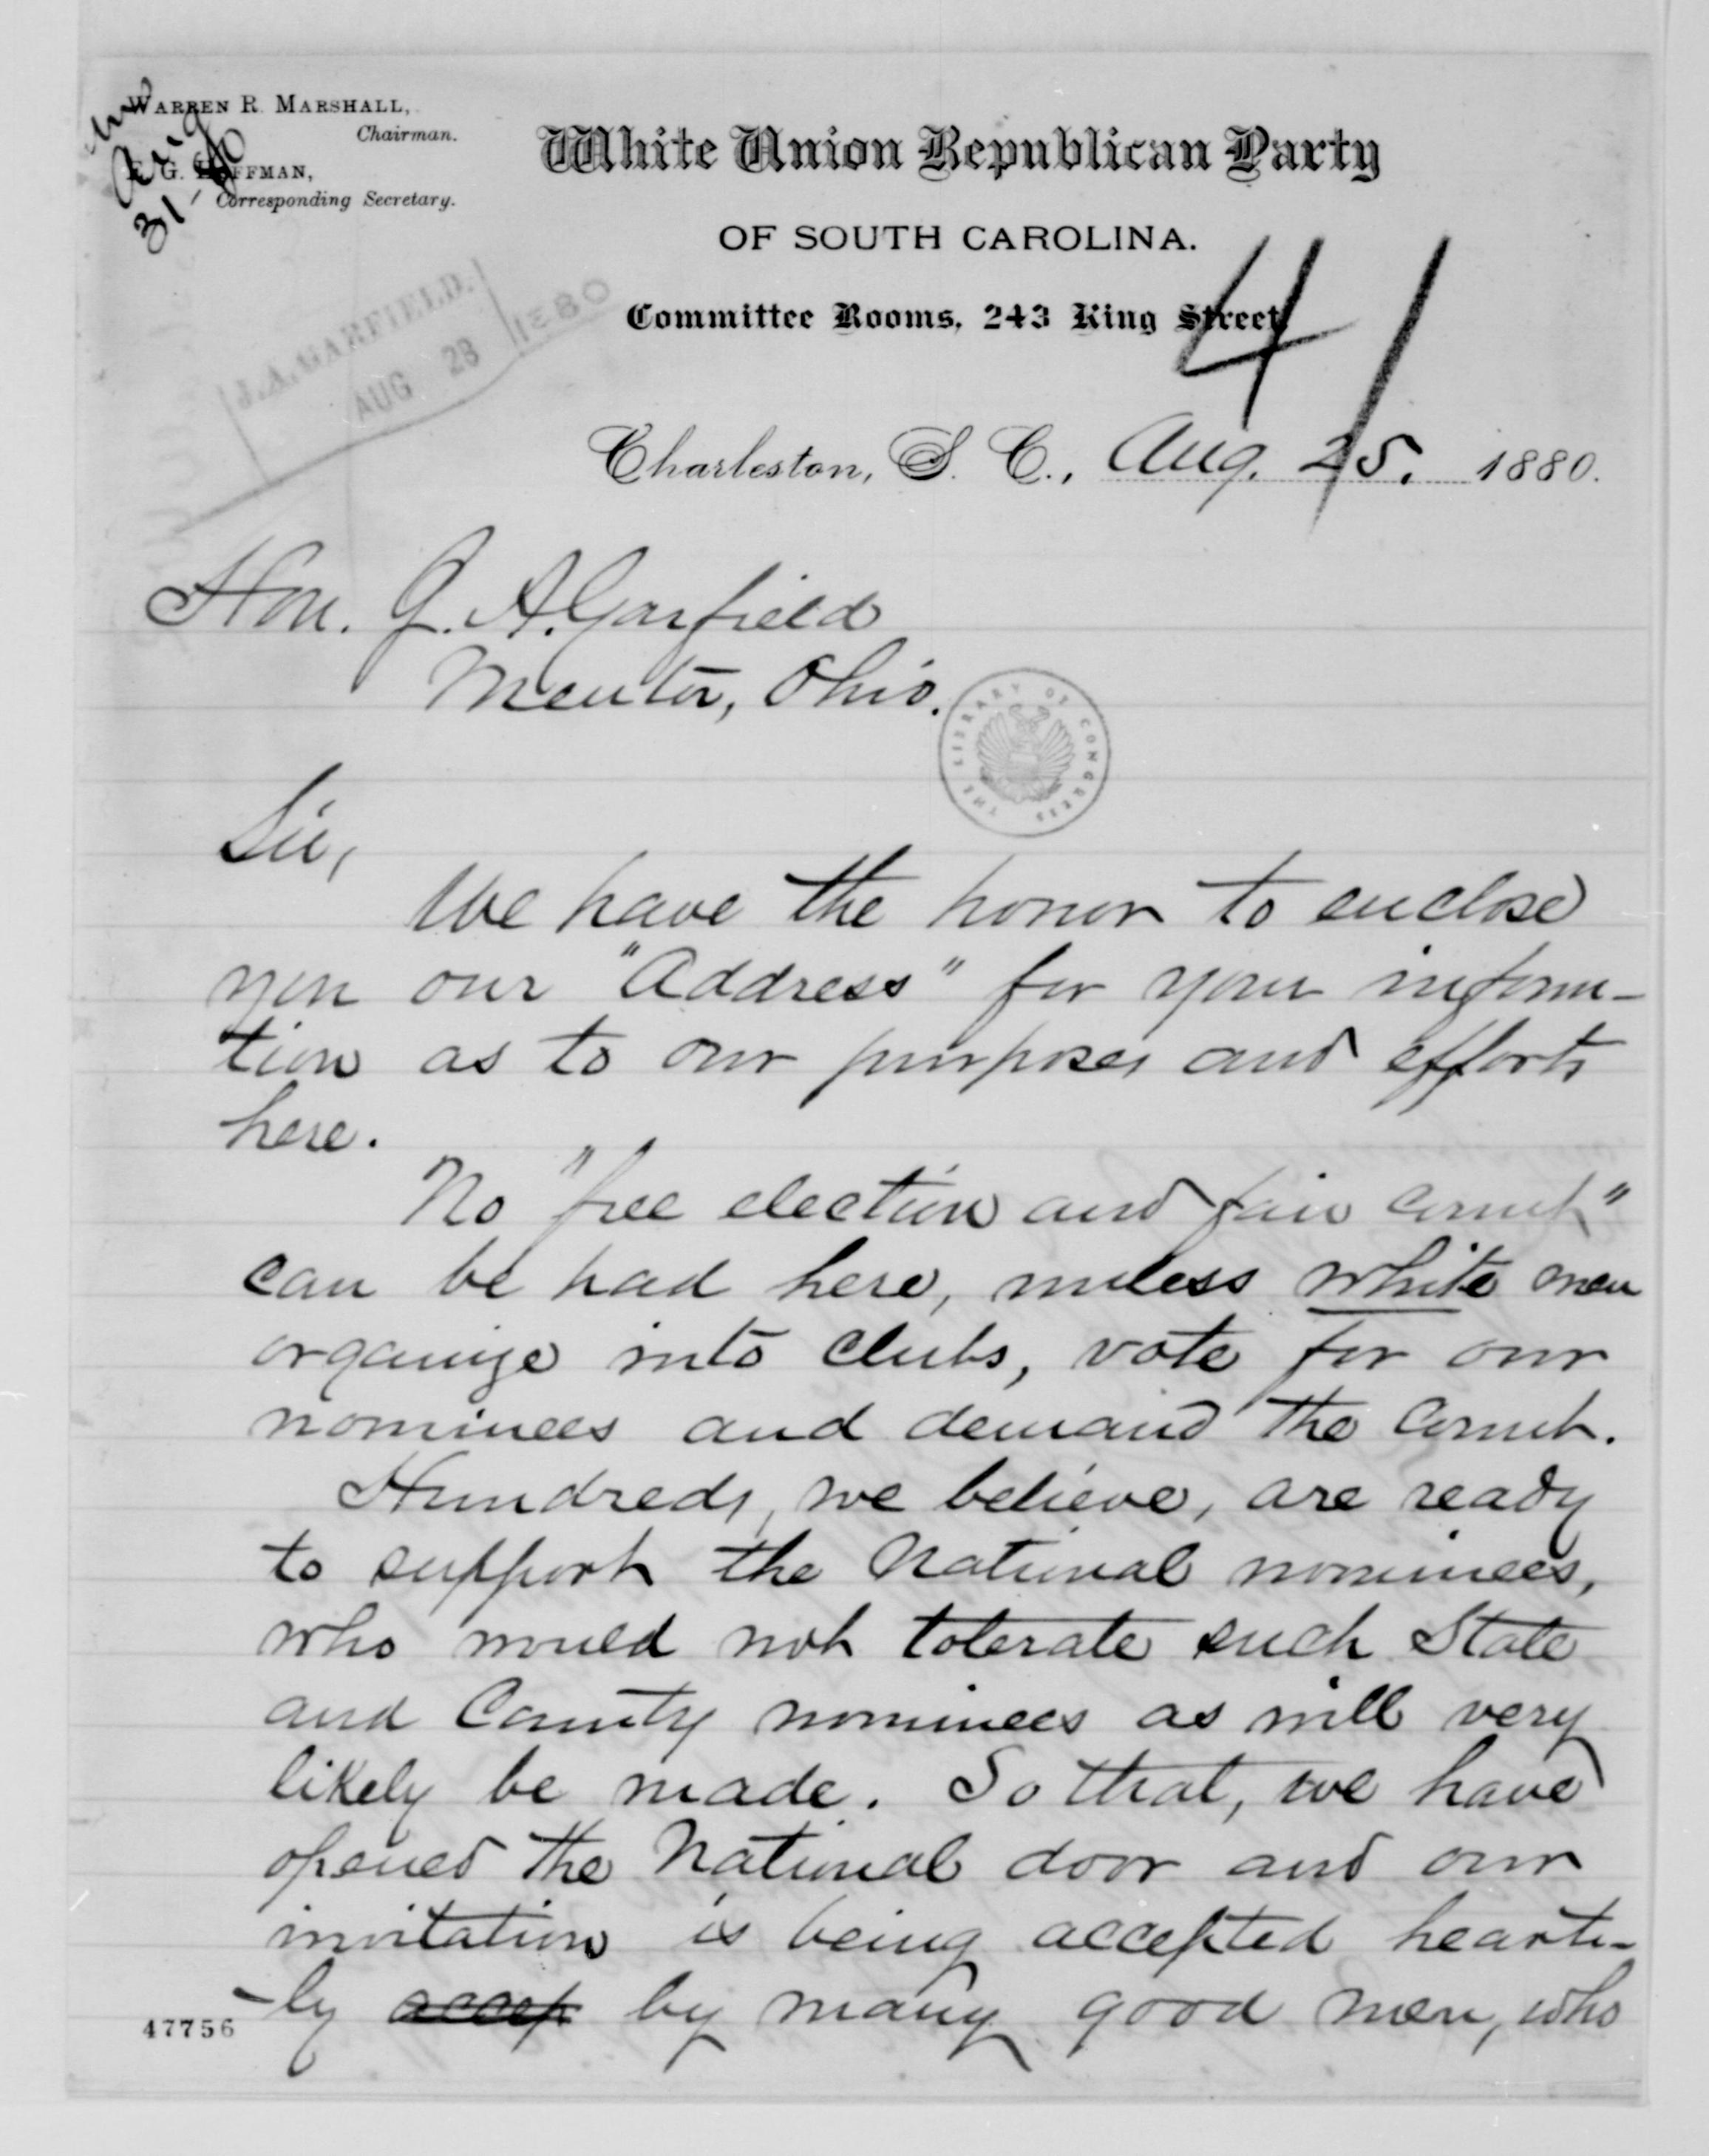 WARREN R. MARSHALL,
Chairman.
G. HOFFMAN,
Corresponding Secretary.
Ans
Aug
31/80
White Union Republican Party
OF SOUTH CAROLINA.
Committee Rooms, 243 King Street
41
J.A. GARFIELD.
AUG 28 1880
Charleston, S. C., Aug. 25. 1880.
Hon. J. A. Garfield
Mentor, Ohio.
THE LIBRARY OF CONGRESS
Sir,
We have the honor to enclose
you our "Address" for your inform-
tion as to our purposes and efforts
here.
No "free election and fair count"
can be had here, unless white men
organize into clubs, vote for our
nominees and demand the count.
Hundreds, we believe, are ready
to support the National nominees,
who would not tolerate such State
and County nominees as will very
likely be made. So that, we have
opened the National door and our
invitation is being accepted hearti-
-ly accep by many good men, who
47756